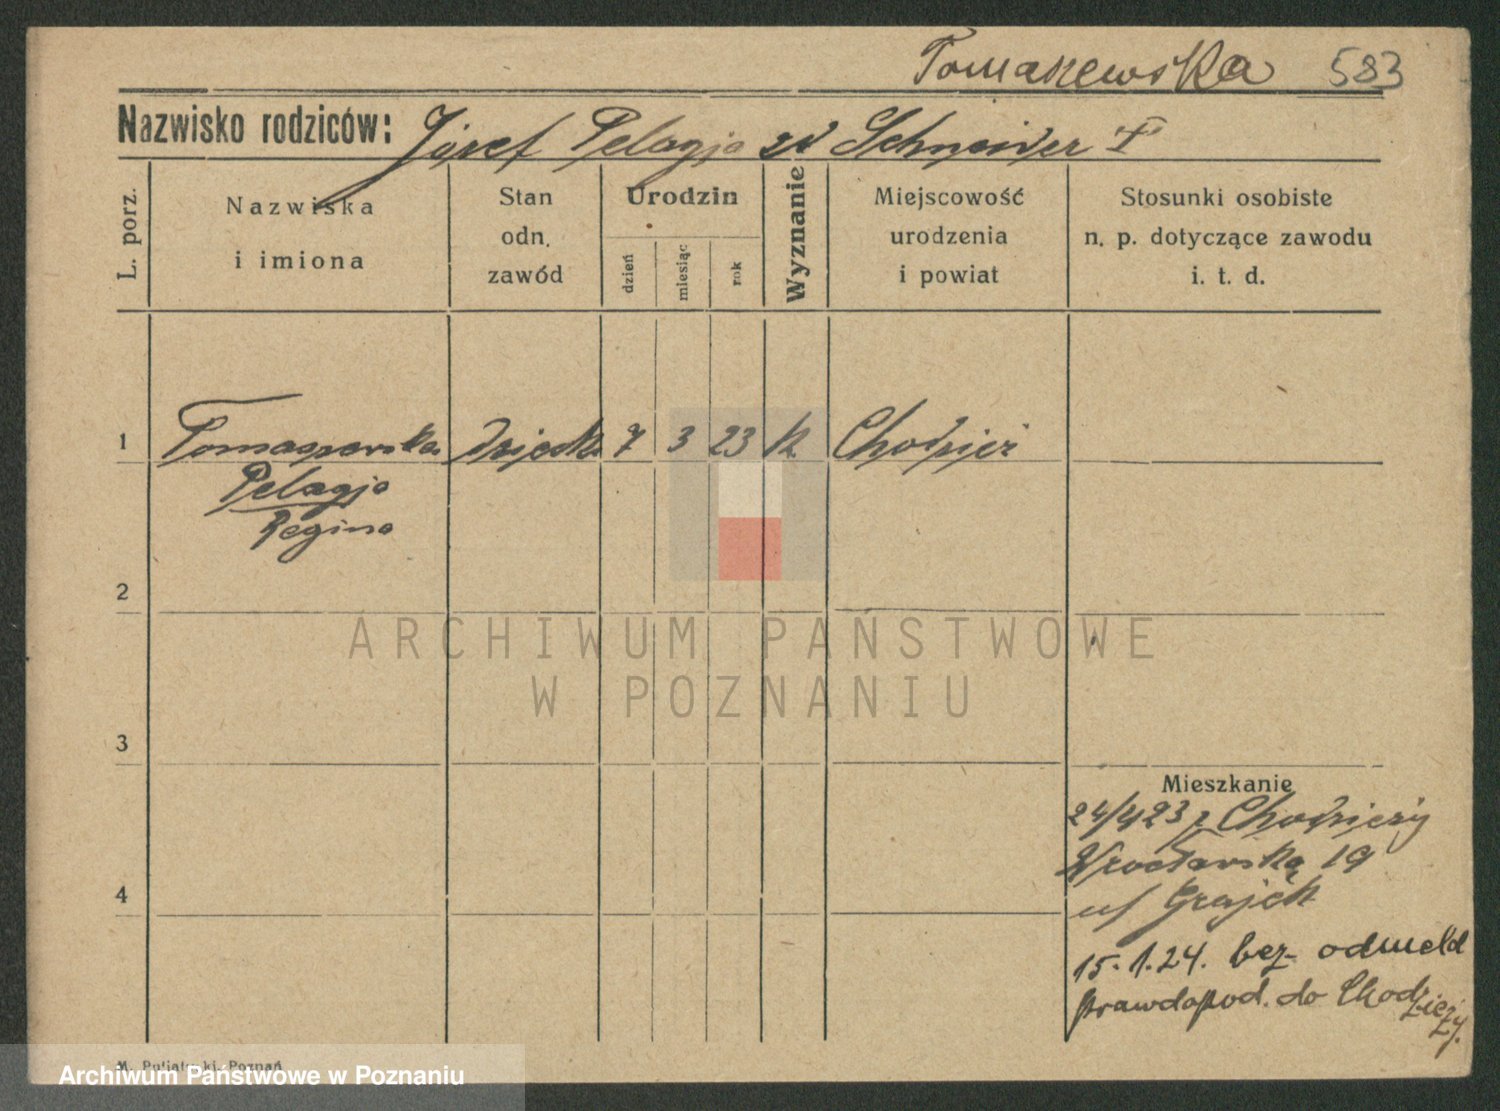 Tomaszewska 583
Nazwisko rodziców: Józef Pelagja zd Schneider †
L. porz.
Nazwiska
i imiona
Stan
odn.
zawód
Urodzin
dzień
miesiąc
rok
Wyznanie
Miejscowość
urodzenia
i powiat
Stosunki osobiste
n. p. dotyczące zawodu
i. t. d.
1 Tomaszewska dziecko 7 3 23 k Chodzież
Pelagja
Regina
2
ARCHIWUM PAŃSTWOWE
W POZNANIU
3
Mieszkanie
24/4 23 z Chodzieży
Wrocławska 19
u/ Grajek
4
15.1.24. bez odmeld
prawdopod. do Chodzieży.
M. Putiatycki, Poznań
Archiwum Państwowe w Poznaniu